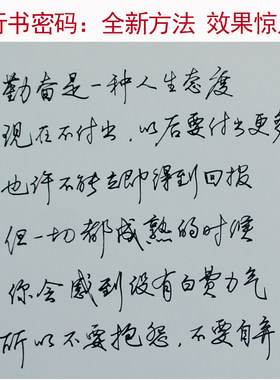 行书密码：全新方法 效果惊
勤奋是一种人生态度
现在不付出，以后要付出更多
也许不能立即得到回报
但一切都成熟的时候
你会感到没有白费力气
所以不要抱怨，不要自弃